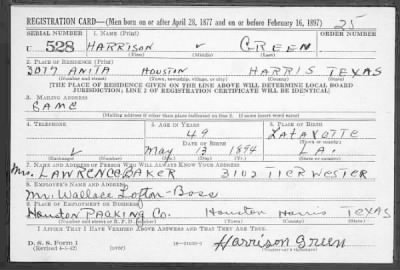 REGISTRATION CARD—(Men born on or after April 28, 1877 and on or before February 16, 1897) 25
SERIAL NUMBER 1. NAME (Print) ORDER NUMBER
U 528 HARRISON v GREEN
(First) (Middle) (Last)
2. PLACE OF RESIDENCE (Print)
3017 ANITA HOUSTON HARRIS TEXAS
(Number and street) (Town, township, village, or city) (County) (State)
[THE PLACE OF RESIDENCE GIVEN ON THE LINE ABOVE WILL DETERMINE LOCAL BOARD
JURISDICTION; LINE 2 OF REGISTRATION CERTIFICATE WILL BE IDENTICAL]
3. MAILING ADDRESS
SAME
[Mailing address if other than place indicated on line 2. If same insert word same]
4. TELEPHONE 5. AGE IN YEARS 6. PLACE OF BIRTH
49 LAFAYETTE
DATE OF BIRTH (Town or county)
v May 13 1894 LA.
(Exchange) (Number) (Mo.) (Day) (Yr.) (State or country)
7. NAME AND ADDRESS OF PERSON WHO WILL ALWAYS KNOW YOUR ADDRESS
Mr. LAWRENCE BAKER 3102 TIERWESTER
8. EMPLOYER'S NAME AND ADDRESS
Mr. Wallace Lofton-Boss
9. PLACE OF EMPLOYMENT OR BUSINESS
Houston PACKING Co. Houston Harris TEXAS
(Number and street or R. F. D. number) (Town) (County) (State)
I AFFIRM THAT I HAVE VERIFIED ABOVE ANSWERS AND THAT THEY ARE TRUE.
D. S. S. Form 1
(Revised 4-1-42) (over) Harrison Green
(Registrant's signature)